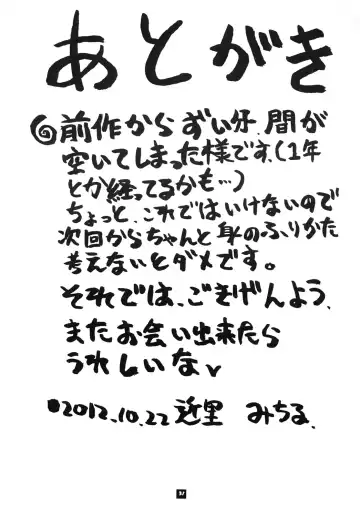 あとがき
前作からずい分、間が
空いてしまった様です。(1年
とか経ってるかも…)
ちょっと、これではいけないので
次回からちゃんと身のふりかた
考えないとダメです。
それでは、ごきげんよう。
またお会い出来たら
うれしいな
2012.10.22 近里 みちる.
37